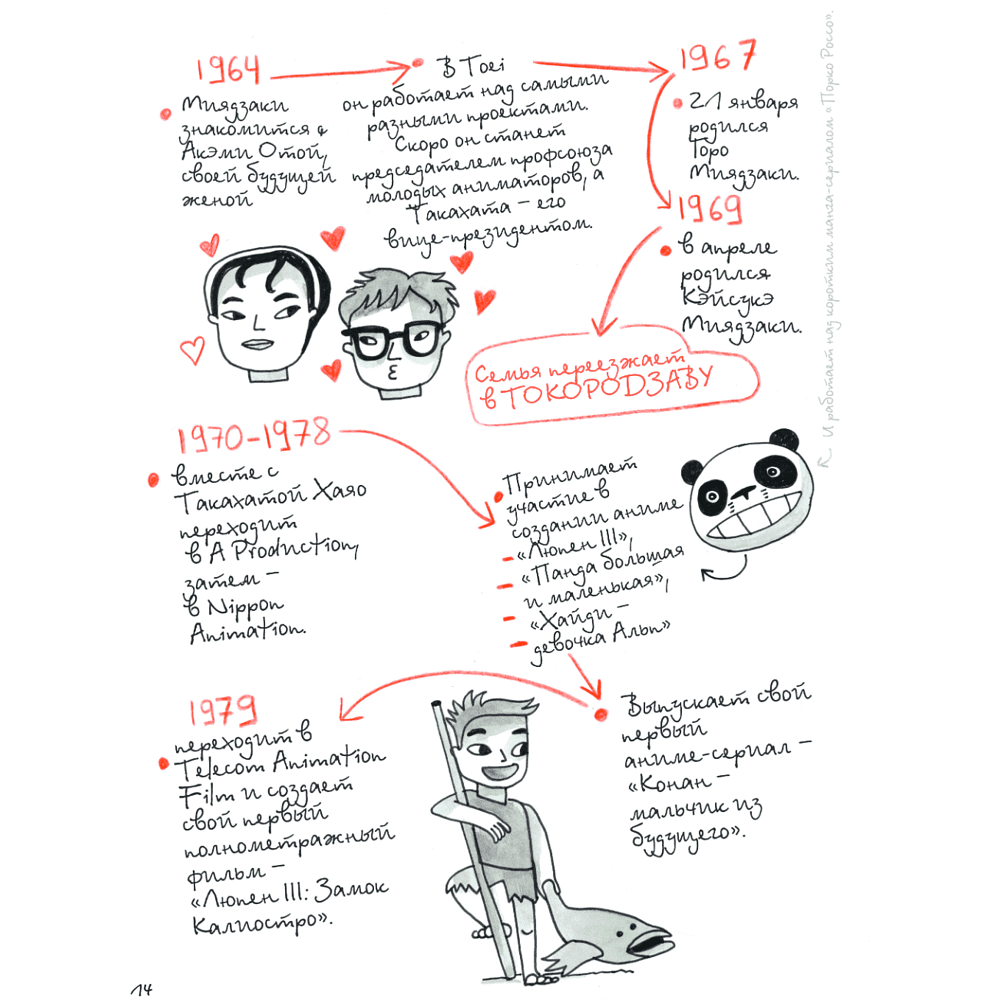 1964
Миядзаки
знакомится с
Акэми Отой,
своей будущей
женой
В Toei
он работает над самыми
разными проектами.
Скоро он станет
председателем профсоюза
молодых аниматоров, а
Такахата – его
вице-президентом.
1967
21 января
родился
Горо
Миядзаки.
1969
в апреле
родился
Кэйсукэ
Миядзаки.
Семья переезжает
в ТОКОРОДЗАВУ
1970–1978
вместе с
Такахатой Хаяо
переходит
в A Production,
затем –
в Nippon
Animation.
Принимает
участие в
создании аниме
– «Люпен III»,
– «Панда большая
и маленькая»,
– «Хайди –
– девочка Альп»
Выпускает свой
первый
аниме-сериал –
«Конан –
мальчик из
будущего».
1979
переходит в
Telecom Animation
Film и создает
свой первый
полнометражный
фильм –
«Люпен III: Замок
Калиостро».
И работает над коротким манга-сериалом «Порко Россо».
14